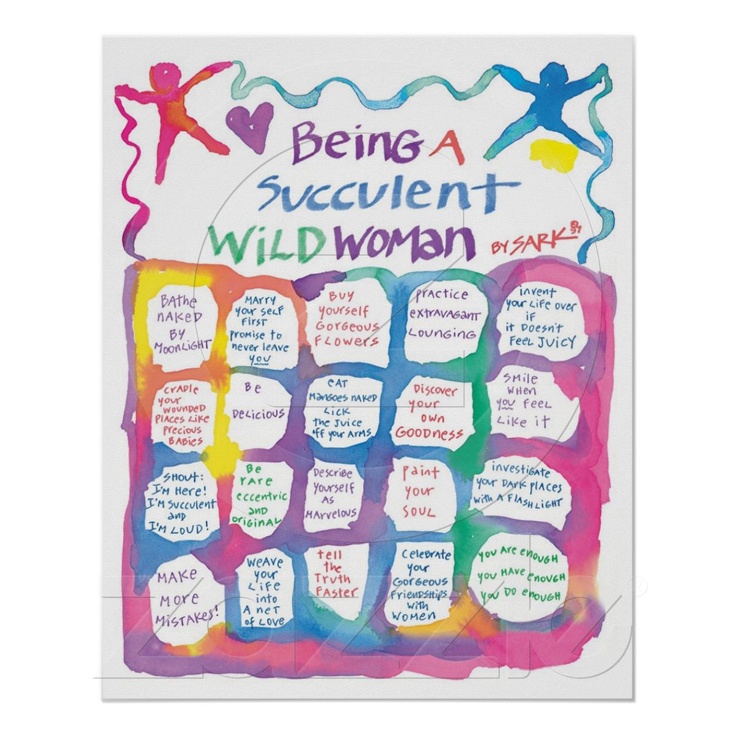 Being A
Succulent
WiLD WOMAN BY SARK
BATHE
NAKED
BY
MOONLIGHT
MARRY
your self
First
promise to
never leave
you
Buy
yourself
Gorgeous
Flowers
practice
extravagant
Lounging
invent
your Life over
if
it Doesn't
Feel Juicy
CRADLE
your
wounded
places like
precious
Babies
Be
Delicious
eat
Mangoes naked
Lick
the Juice
off your Arms
Discover
your
own
GOODNESS
SMILE
WHEN
you Feel
Like it
SHOUT:
I'm Here!
I'm succulent
and
I'm LOUD!
Be
rare
eccentric
and
original
Describe
yourself
as
Marvelous
paint
your
SOUL
investigate
your Dark places
with A FLASHLIGHT
MAKE
MORE
MISTAKES!
WEAVE
your
Life
into
A net
of Love
tell
the
Truth
Faster
Celebrate
your
Gorgeous
Friendships
with
Women
you are enough
you Have enough
you Do enough
ZAZZLE